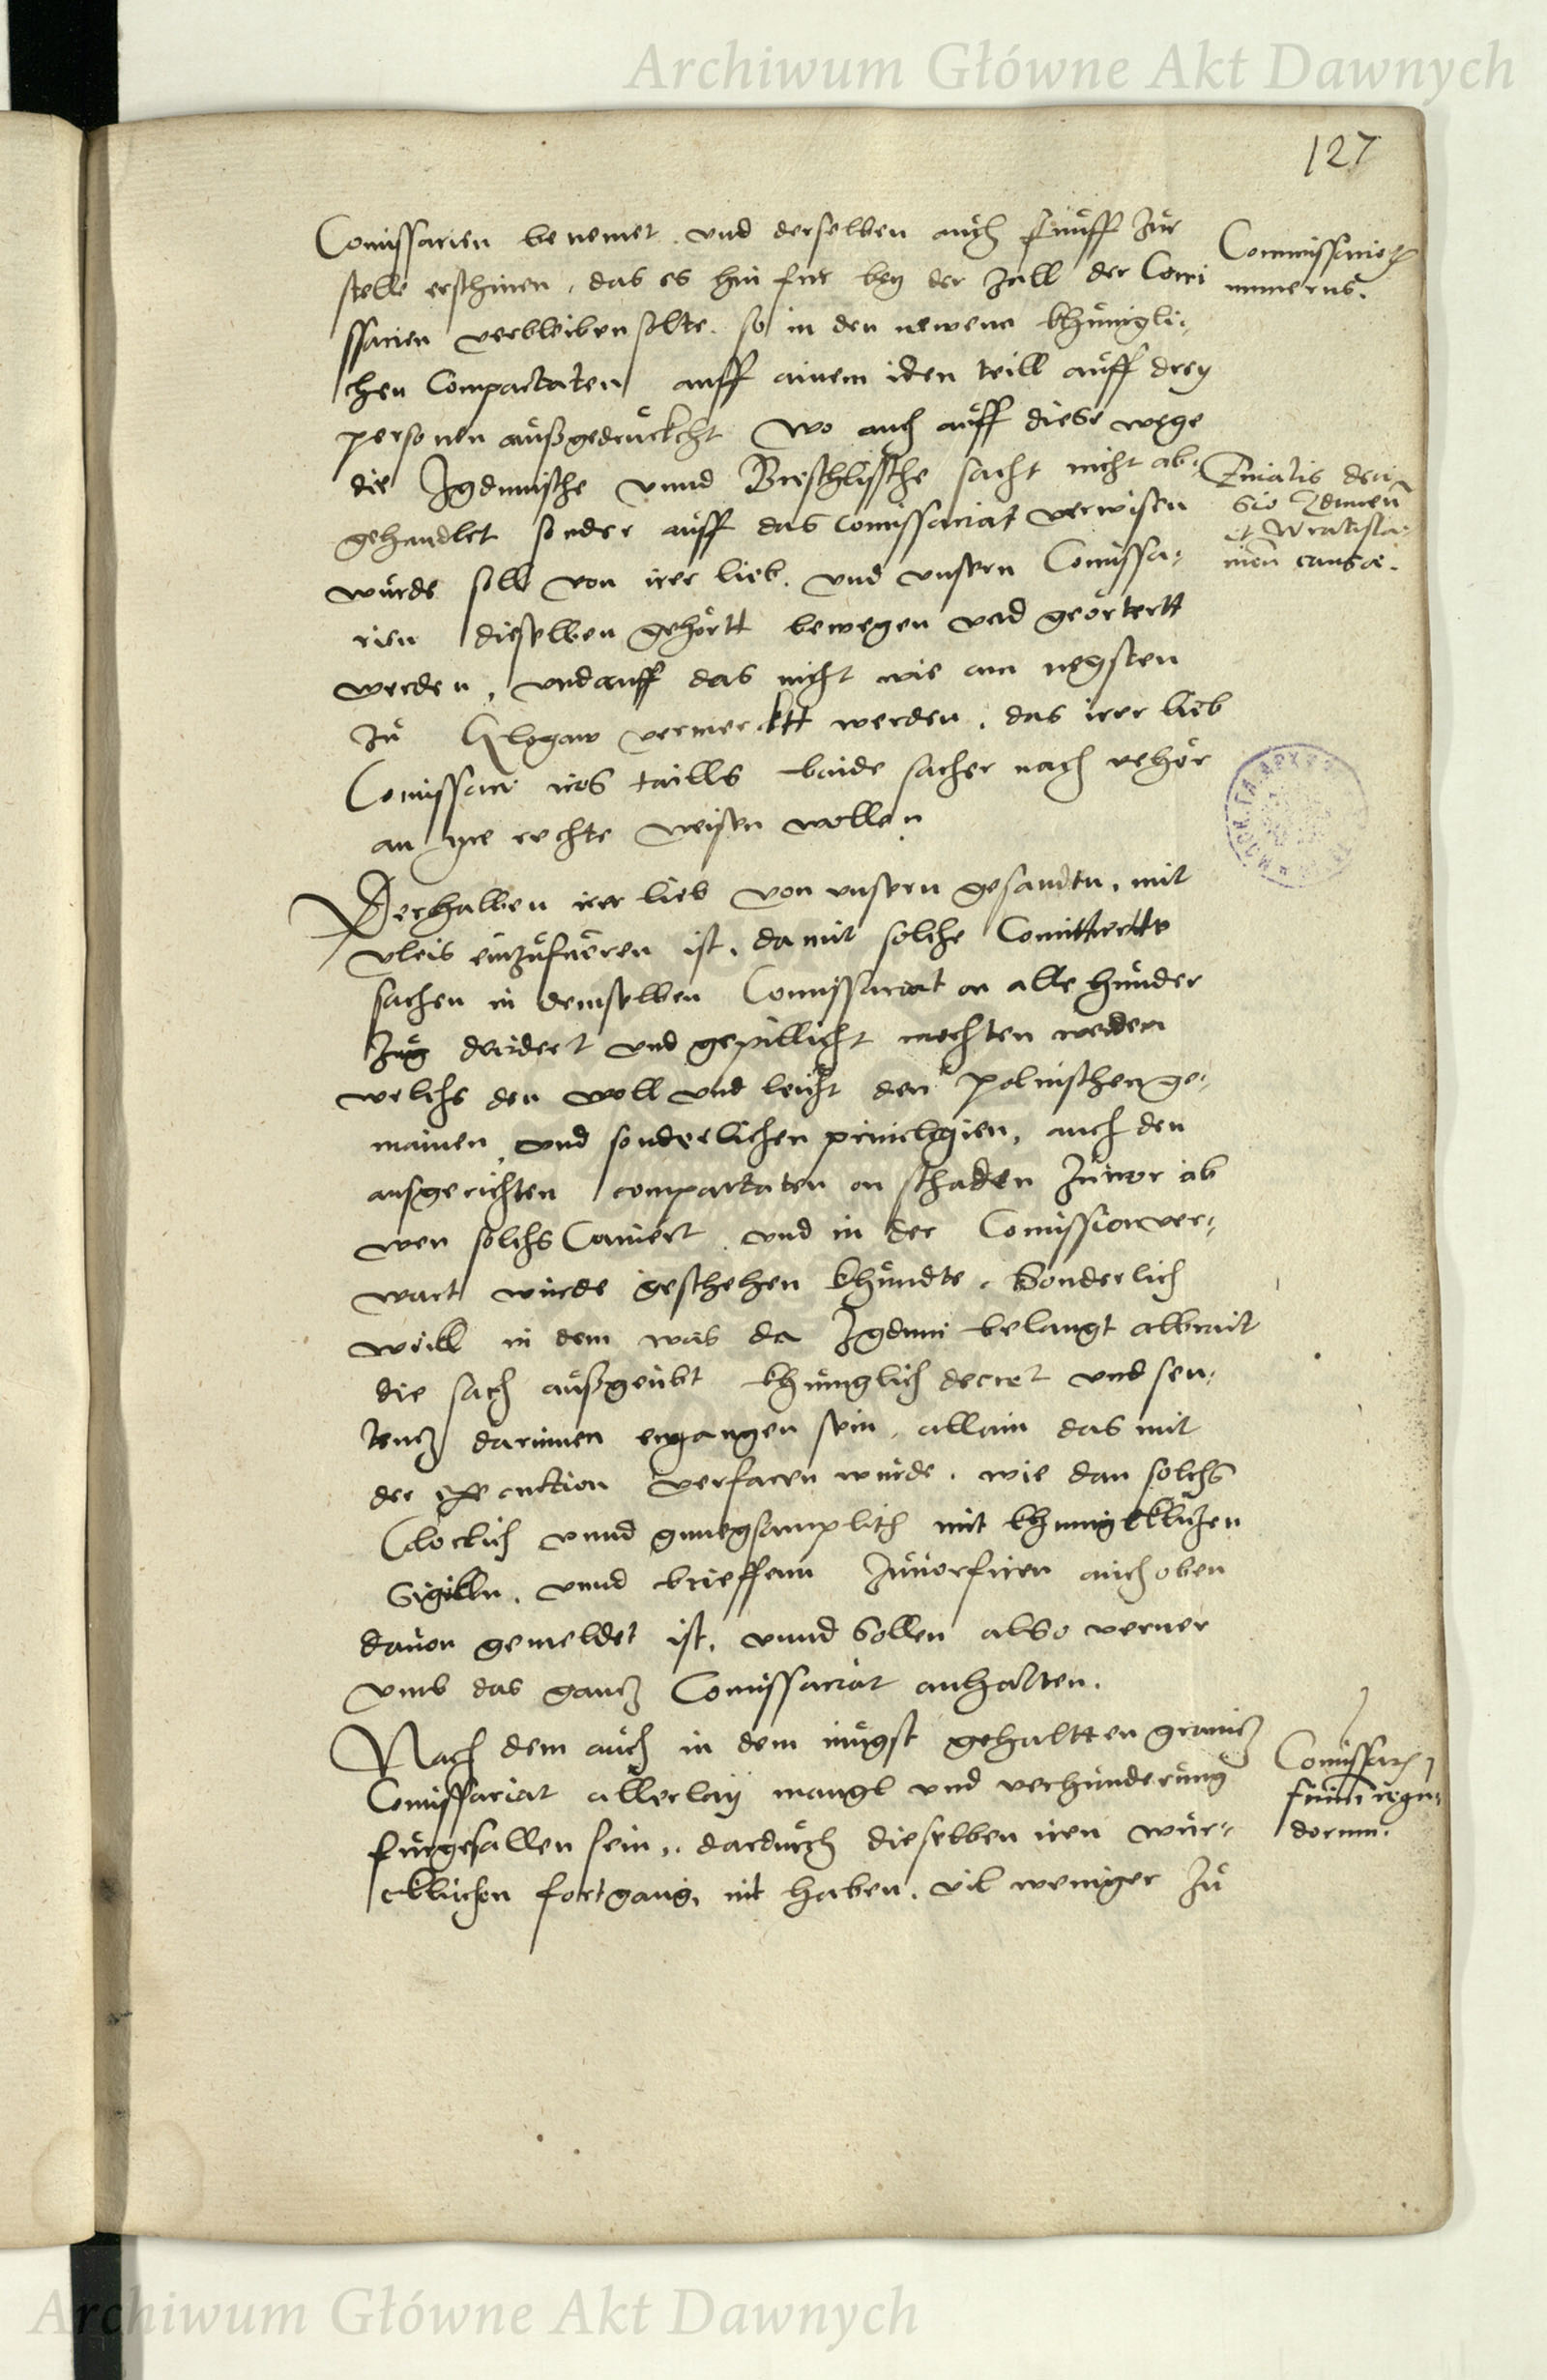 Archiwum Główne Akt Dawnych
127
Comissarien benemet. vnd derselben auch fünff Zür
stelle erschinen, das es hin für bey der Zall der Comi
ssarien verbleiben solte. so in den newenn khünigli-
chen Compactaten auff ainem iden teill auff drey
personen außgedruckcht Wo auch auff diese wege
die Zgdunische vnnd Breschlische sacht nicht ab-
gehandlet sonder auff das Comissariat verwisen
würde soll von irer lieb. vnd vnsern Comissa-
rien dieselben gehörtt bewegen vnd geörtertt
werden, vnd auff das nicht wie am negsten
Zü Glogaw vermercktt werden, das irer lieb
Comissari irs taills baide sachen nach vehör
an ire rechte weisen wollen
Derhalben irer lieb von vnsern gesandtn, mit
vleis einzufüeren ist, damit solche Comittirtte
sachen in demselben Comissariat on alle hünder
Züg decidert vnd gepillicht mochten werden
welchs den woll vnd leicht den polnischen ge-
mainen, vnd sonderlichen priuilegien, auch den
aufgerichten compactaten on schaden Züuor ab
wen solchs Cauiert, vnd in der Comission ver-
wart würde geschehen khündte. Sonderlich
weill in dem was da Zgduni belangt albrait
die sach außgeübt khüniglich decret vnd sen-
tencz darinnen ergangen sein, allain das mit
der execuction verfaren würde, wie dan solchs
Clerlich vnnd gnuegsamplich mit khuniglklichen
Sigilln, vnnd brieffenn Züuorfüren auch oben
dauon gemeldet ist, vnnd Sollen also verner
vmb das gancz Comissariat anhalten.
Nach dem auch in dem iüngst gehaltten granicz
Comissariat allerlay mangl vnd verhünderüng
fürgefallen sein, dardurch dieselben iren wür-
cklichen fortgang, nit haben, vil weniger Zü
Commissariorum
numerus.
Finalis deci
sio Zdunen
et Wratisla-
uien causae.
Comissariorum
finium regun-
dorum.
Archiwum Główne Akt Dawnych